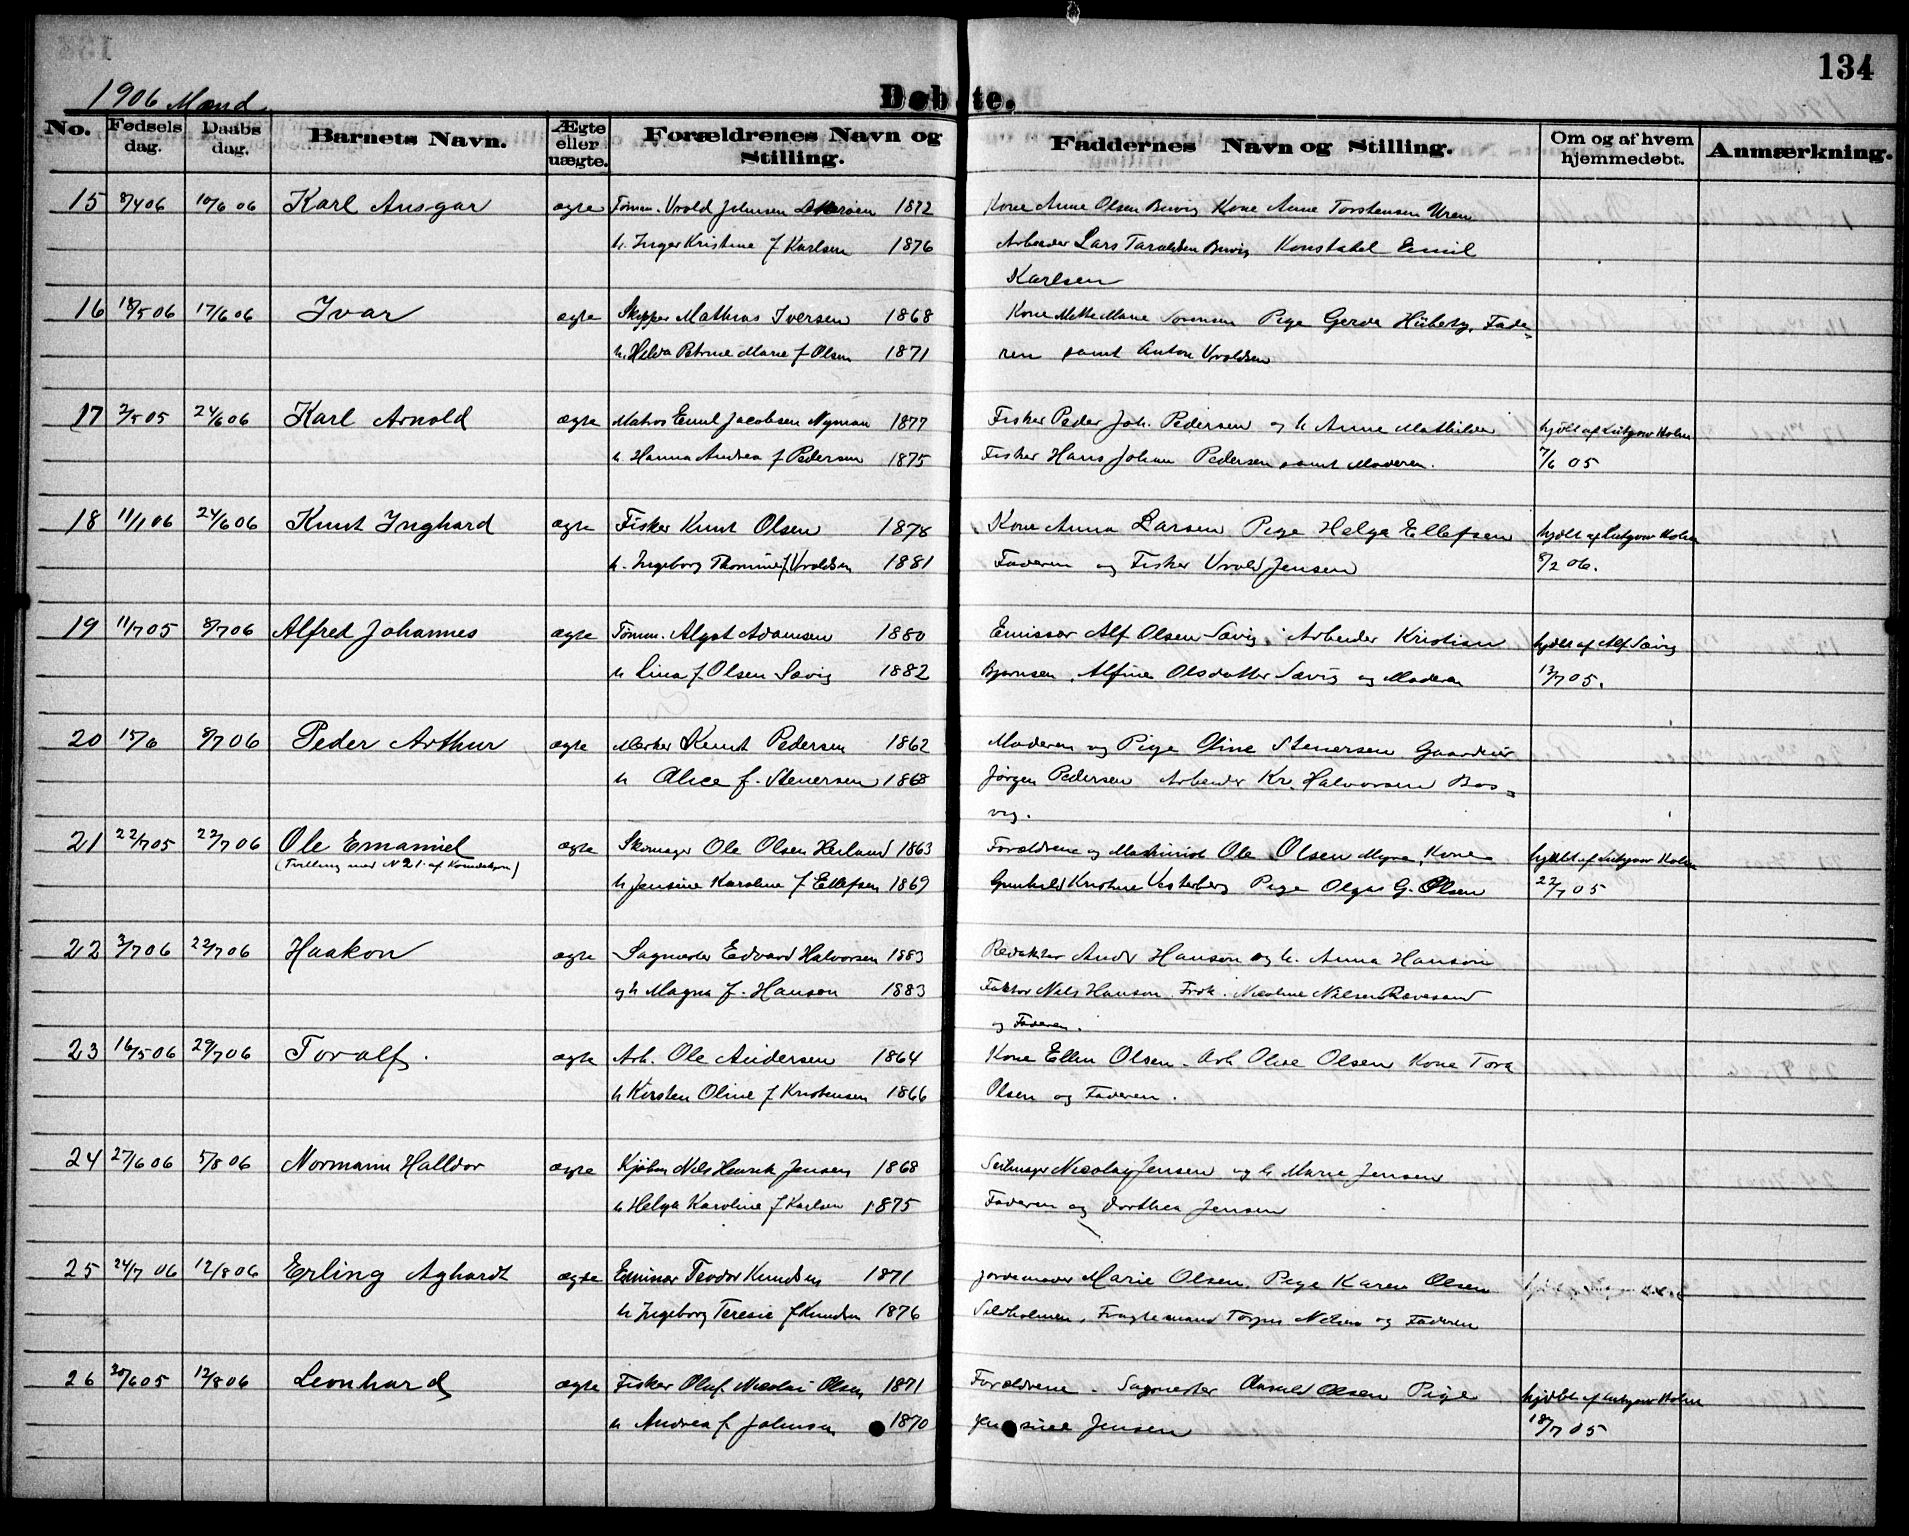 134
1906 Mænd
Døbte.
No. Fødsels dag. Daabs dag. Barnets Navn. Ægte eller uægte. Forældrenes Navn og Stilling. Faddernes Navn og Stilling. Om og af hvem hjemmedøbt. Anmærkning.
15 8/4 06 10/6 06 Karl Ansgar ægte Tømm. Vrold Johnsen 1872 Kone Anne Olsen Buvig Kone Anne Torstensen Uren
h. Inger Kristine f Karlsen 1876 Arbeider Lars Taraldsen Buvig Konstabel Emil
Karlsen
16 18/5 06 17/6 06 Ivar ægte Skipper Mathias Iversen 1868 Kone Mette Marie Sørensen Pige Gerda Fade-
h. Helda Petrine Marie f Olsen 1871 ren samt Anton Vroldsen
17 2/5 05 24/6 06 Karl Arnold ægte Matros Emil Jacobsen Nyman 1877 Fisker Peder Joh. Pedersen og h Anne Mathilde hjdbt af Holm
h. Hanna Andrea f Pedersen 1875 Fisker Hans Johan Pedersen samt Moderen. 7/6 05
18 11/1 06 24/6 06 Knut Inghard ægte Fisker Knut Olsen 1878 Kone Anna Larsen Pige Helga Ellefsen hjdbt af Holm
h. Ingeborg Thomine f Vroldsen 1881 Faderen og Fisker Vrold Jensen 8/2 06.
19 11/7 05 8/7 06 Alfred Johannes ægte Tømm. Algot Adamsen 1880 Emissær Alf Olsen Sævig, Arbeider Kristian hjdbt af Alf Sævig
h Lina f Olsen Sævig 1882 Bjørnsen, Alfine Olsdatter Sævig og Moderen 13/7 05.
20 15/6 8/7 06 Peder Arthur ægte Mærker Knut Pedersen 1862 Moderen og Pige Oline Stenersen Gaardeier
h Alice f. Stenersen 1868 Jørgen Pedersen Arbeider Kr. Halvorsen Bos-
vig.
21 22/7 05 22/7 06 Ole Emanuel ægte Skomager Ole Olsen Herlund 1863 Forældrene og Maskinist Ole Olsen Myra, Kone hjdbt af Holm
(Tvilling med N 21 af Kvindekjøn) h Jensine Karoline f Ellefsen 1869 Gunhild Kristine Vesterberg Pige Olga G. Olsen 22/7 05
22 3/7 06 22/7 06 Haakon ægte Sagmester Edvard Halvorsen 1883 Redaktør Andr Hanson og h. Anna Hanson
og h Magna f. Hanson 1883 Faktor Nils Hanson, Frøk. Nicoline Nilsen Rævesand
og Faderen.
23 16/5 06 29/7 06 Toralf. ægte Arb. Ole Andersen 1864 Kone Ellen Olsen. Arb Olve Olsen Kone Tora
h Kirsten Oline f Kristensen 1866 Olsen og Faderen.
24 27/6 06 5/8 06 Normann Halldor ægte Kjøbm Nils Henrik Jensen 1868 Seilmager Nicolay Jensen og h Marie Jensen
h Helga Karoline f Karlsen 1875 Faderen og Dorthea Jensen
25 24/7 06 12/8 06 Erling Aghardt ægte Emissær Teodor Knudsen 1871 Jordemoder Marie Olsen, Pige Karen Olsen
h Ingeborg Teresie f Knudsen 1876 Sildholmen, Fragtemand Torjus Nilsen og Faderen
26 30/6 05 12/8 06 Leonhard ægte Fisker Oluf Nicolai Olsen 1871 Forældrene. Sagmester Olsen Pige hjdbt af Holm
h Andrea f. Johnsen 1870 Jensine Jensen 18/7 05